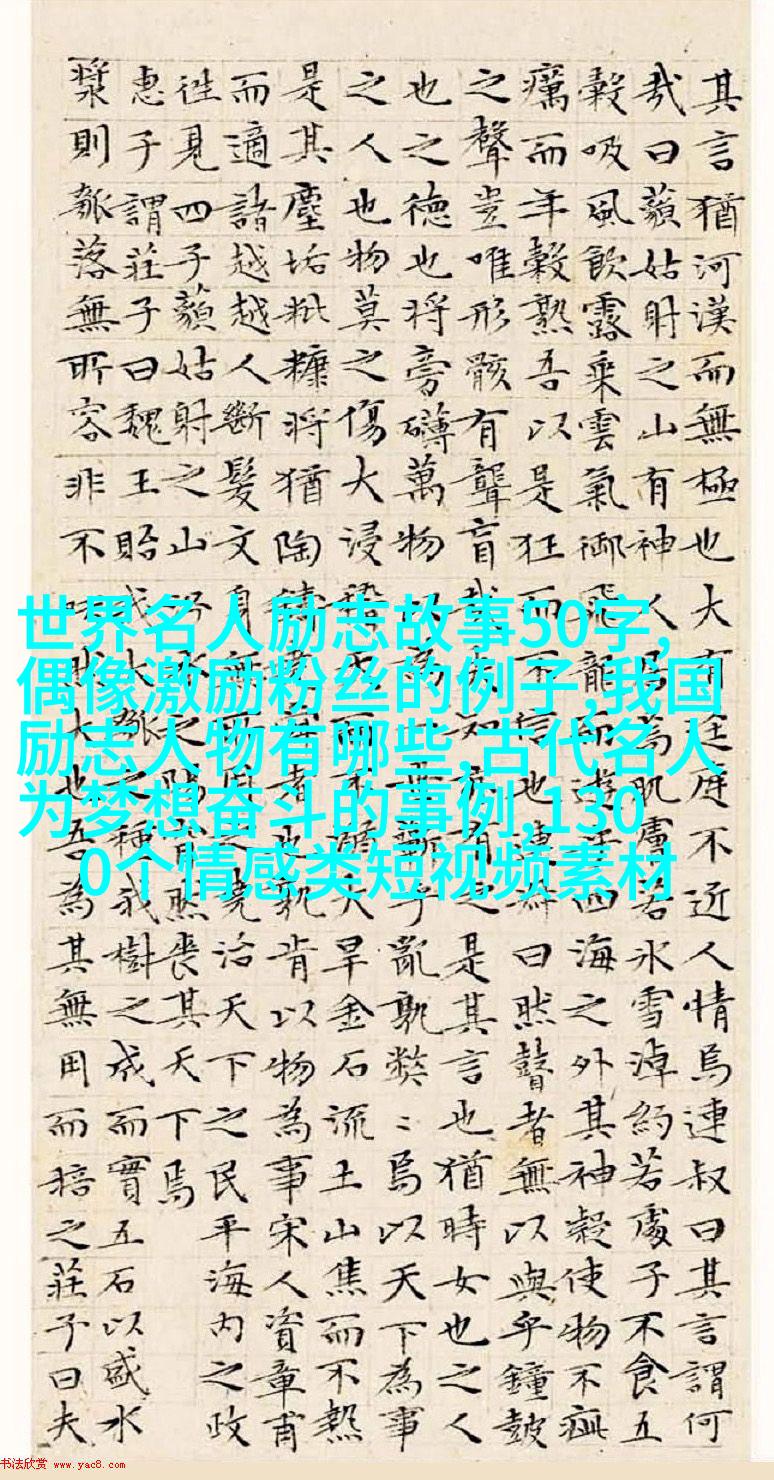 其言猶河漢而無極也大有逕庭不近人情焉連叔曰其言謂何
哉曰藐姑射之山有神人居焉肌膚若冰雪淖約若處子不食五
穀吸風飲露乘雲氣御飛龍而遊乎四海之外其神凝使物不疵
癘而年穀熟吾以是狂而不信也連叔曰然瞽者無以與乎鐘鼓
之聲豈唯形骸有聾盲哉夫知亦有之是其言也猶時女也之人
也之德也將旁礴萬物以為世蘄乎亂孰弊〻焉以天下為事
之人也物莫之傷大浸稽天而不溺大旱金石流土山焦而不熱
是其塵垢粃糠將猶陶鑄堯舜者也孰肯以物為事宋人資章甫
而適諸越越人斷髮文身無所用之堯治天下之民平海内之政
往見四子藐姑射之山汾水之陽窅然喪其天下焉
惠子謂莊子曰魏王貽我大瓠之種我樹之成而實五石以盛水
漿則瓠落無所容非不呺然大也吾為其無用而掊之莊子曰夫
世界名人励志故事50字,
偶像激励粉丝的例子,我国
励志人物有哪些,古代名人
为梦想奋斗的事例,130
0个情感类短视频素材
书法欣赏 www.yac8.com